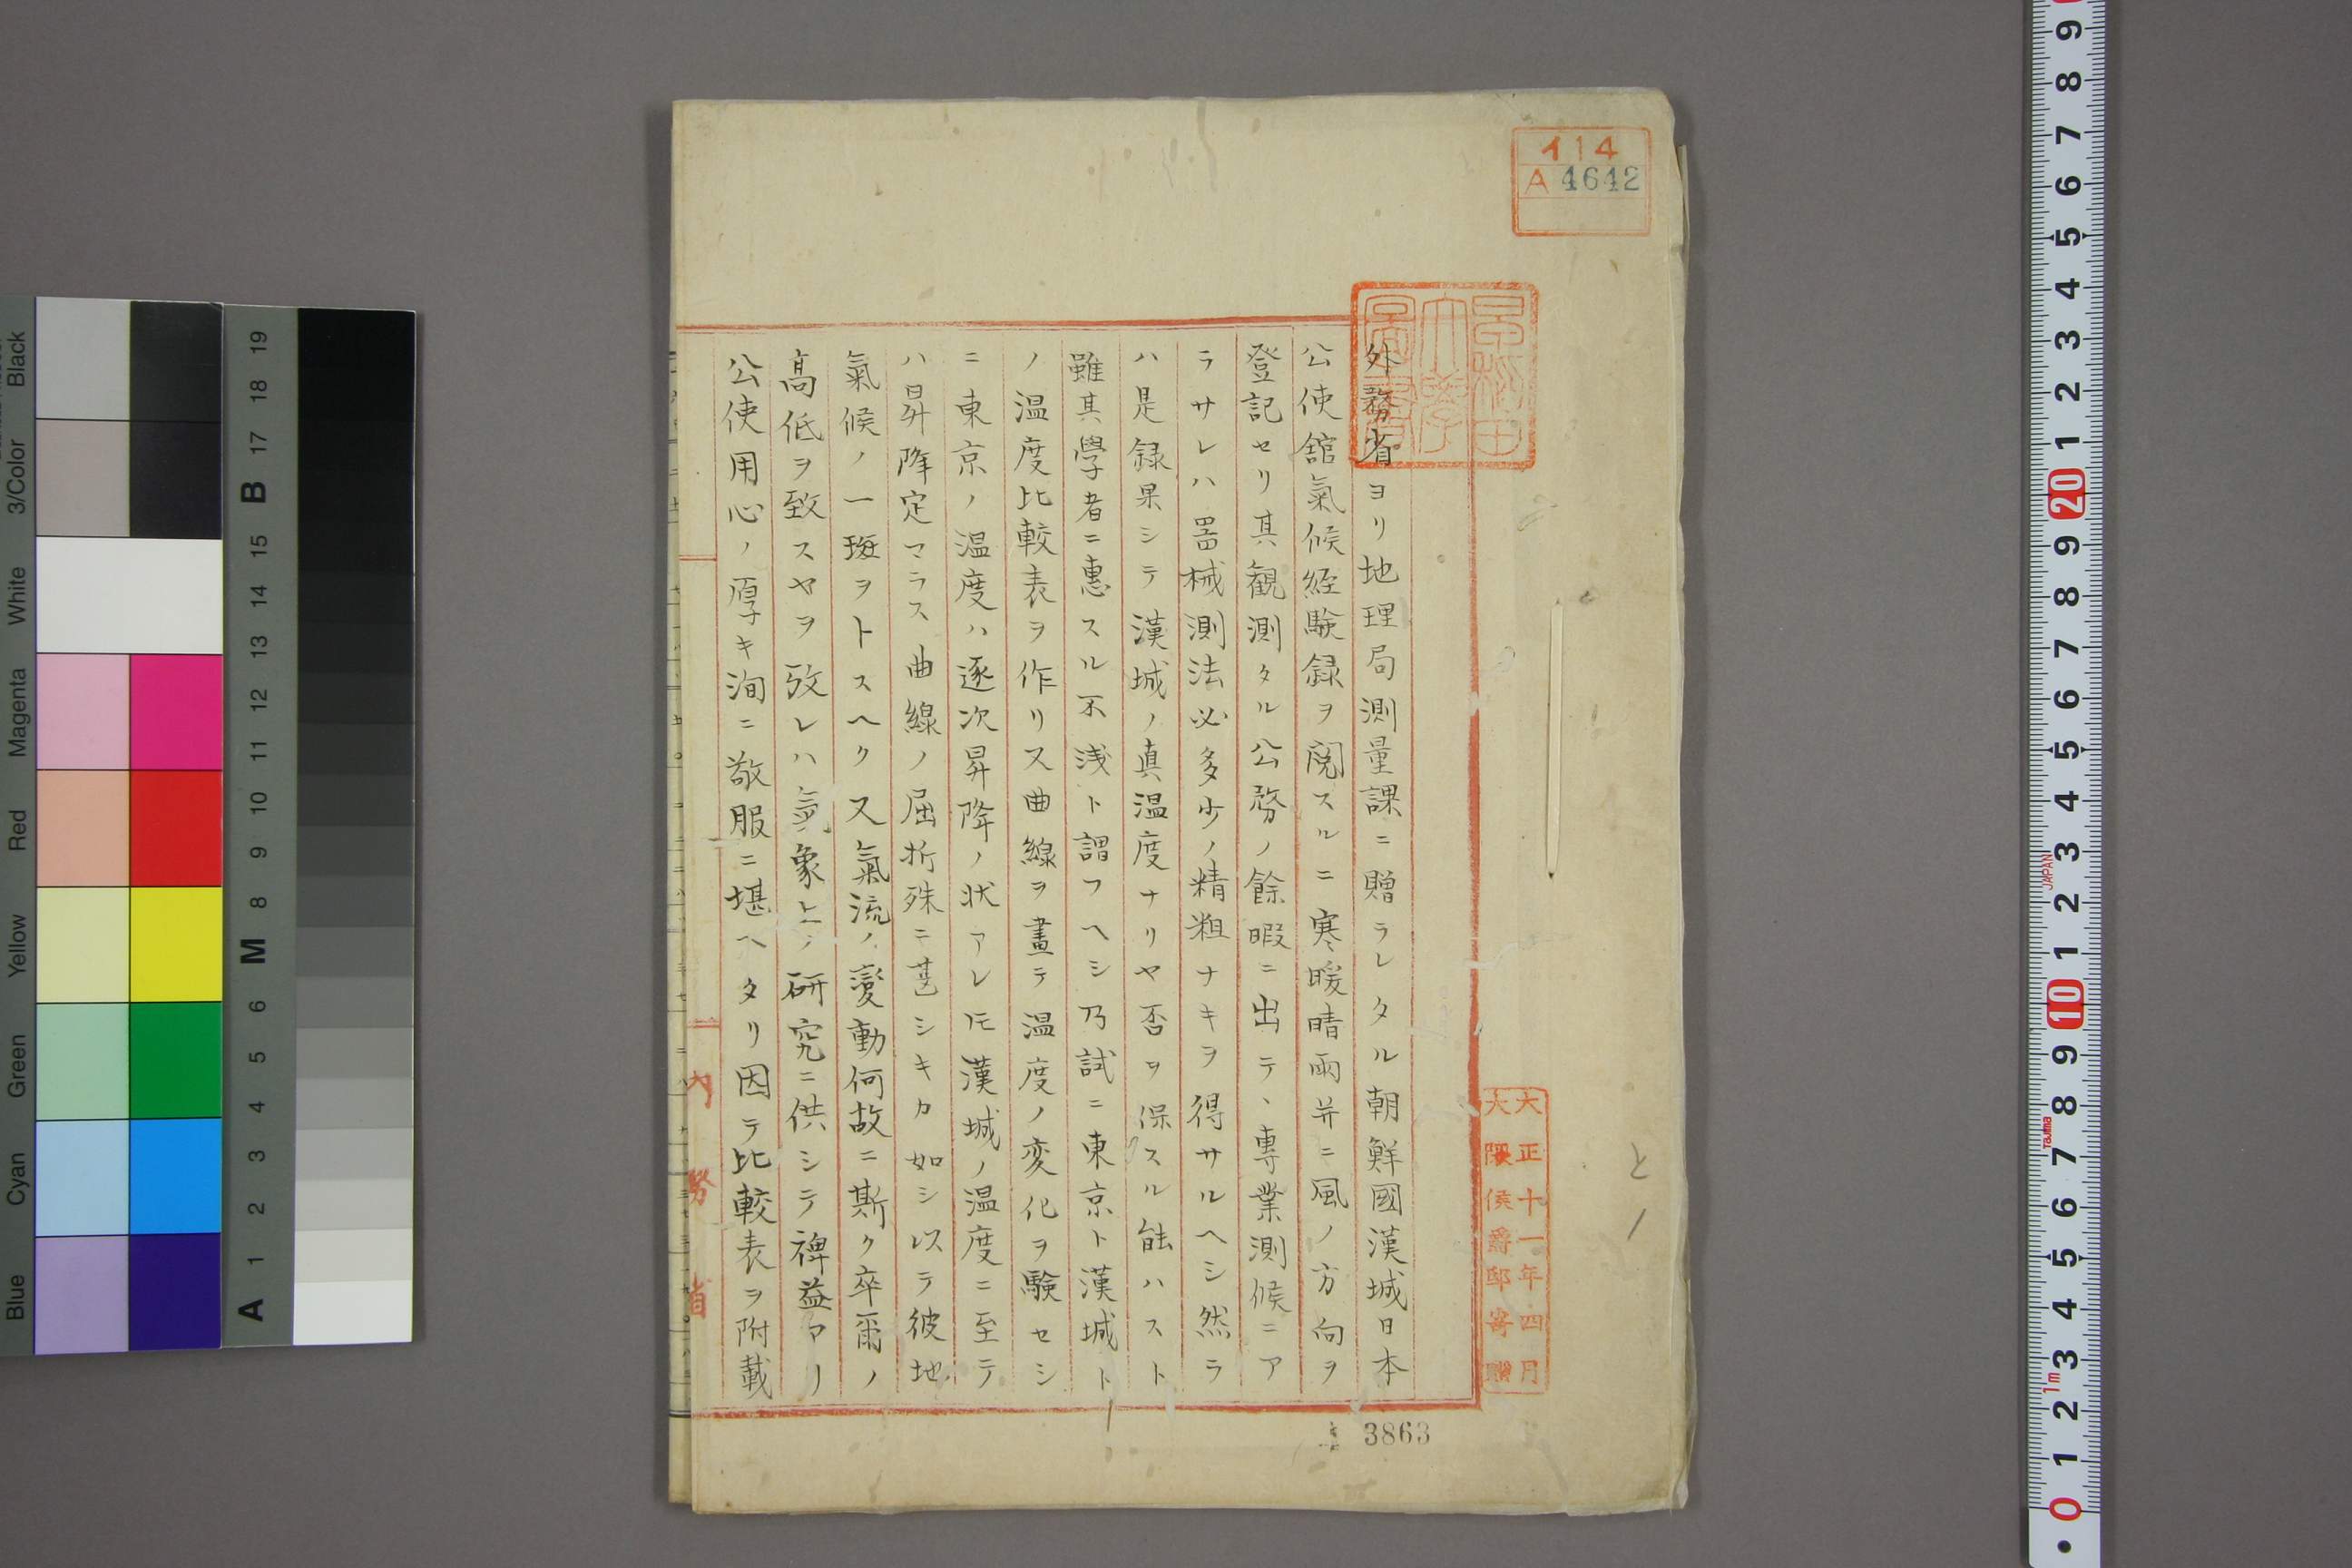 イ14
A 4642
早稲田大學圖書
大正十一年四月
大隈侯爵邸寄贈
外務省ヨリ地理局測量課ニ贈ラレタル朝鮮國漢城日本
公使舘氣候経験録ヲ閲スルニ寒暖晴雨并ニ風ノ方向ヲ
登記セリ其観測タル公務ノ餘暇ニ出テ、専業測候ニア
ラサレハ器械測法必多少ノ精粗ナキヲ得サルヘシ然ラ
ハ是録果シテ漢城ノ真温度ナリヤ否ヲ保スル能ハスト
雖其學者ニ惠スル不浅ト謂フヘシ乃試ニ東京ト漢城ト
ノ温度比較表ヲ作リス曲線ヲ畫テ温度ノ変化ヲ験セシ
ニ東京ノ温度ハ逐次昇降ノ状アレ𪜈漢城ノ温度ニ至テ
ハ昇降定マラス曲線ノ屈折殊ニ甚シキカ如シ以テ彼地
氣候ノ一班ヲトスヘク又氣流ノ変動何故ニ斯ク卒爾ノ
高低ヲ致スヤヲ攷レハ氣象上ノ研究ニ供シテ裨益アリ
公使用心ノ厚キ洵ニ敬服ニ堪ヘタリ因テ比較表ヲ附載
内務省
3863